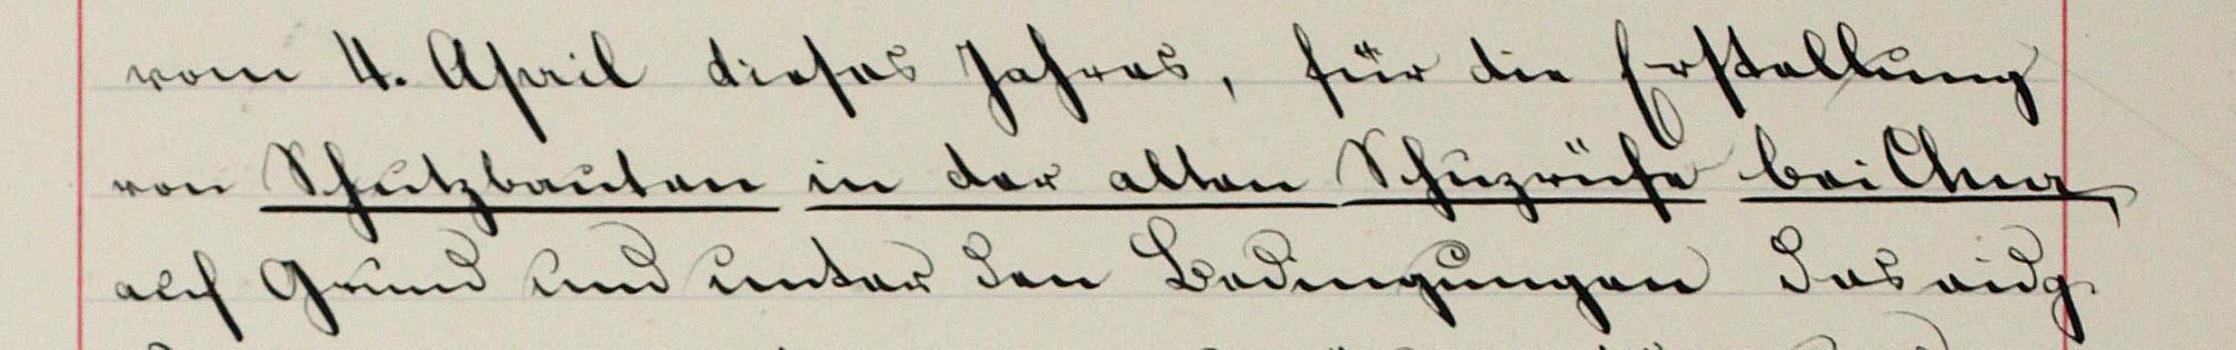 vom 4. April dieses Jahres, für die Erstellung
von Schutzbauten in der alten Schuzrüfe bei Chur
auf Grund und unter den Bedingungen des eidg.